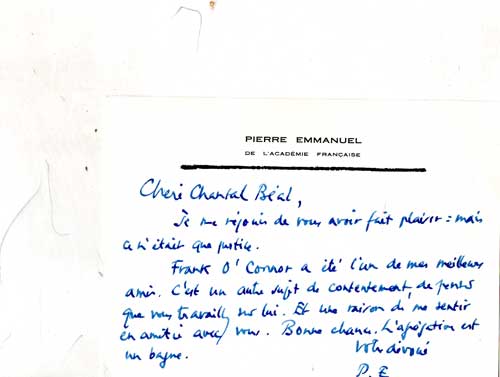 PIERRE EMMANUEL
DE L'ACADÉMIE FRANÇAISE
Chère Chantal Béal,
Je me réjouis de vous avoir fait plaisir : mais
ce n'était que justice.
Frank O'Connor a été l'un de mes meilleurs
amis. C'est un autre sujet de contentement de penser
que vous travaillez sur lui. Et une raison de me sentir
en amitié avec vous. Bonne chance. L'agrégation est
un bagne.
Votre dévoué
P. E